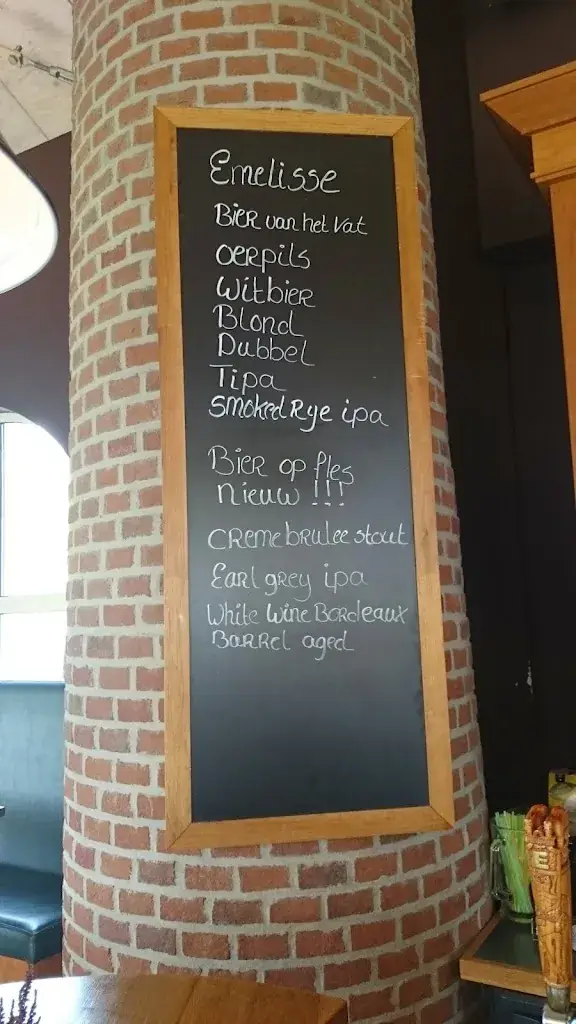 Emelisse
Bier van het Vat
oerpils
Witbier
Blond
Dubbel
Tipa
smoked Rye ipa
Bier op fles
nieuw !!!
Creme brulee stout
Earl grey ipa
White Wine Bordeaux
Barrel aged
E